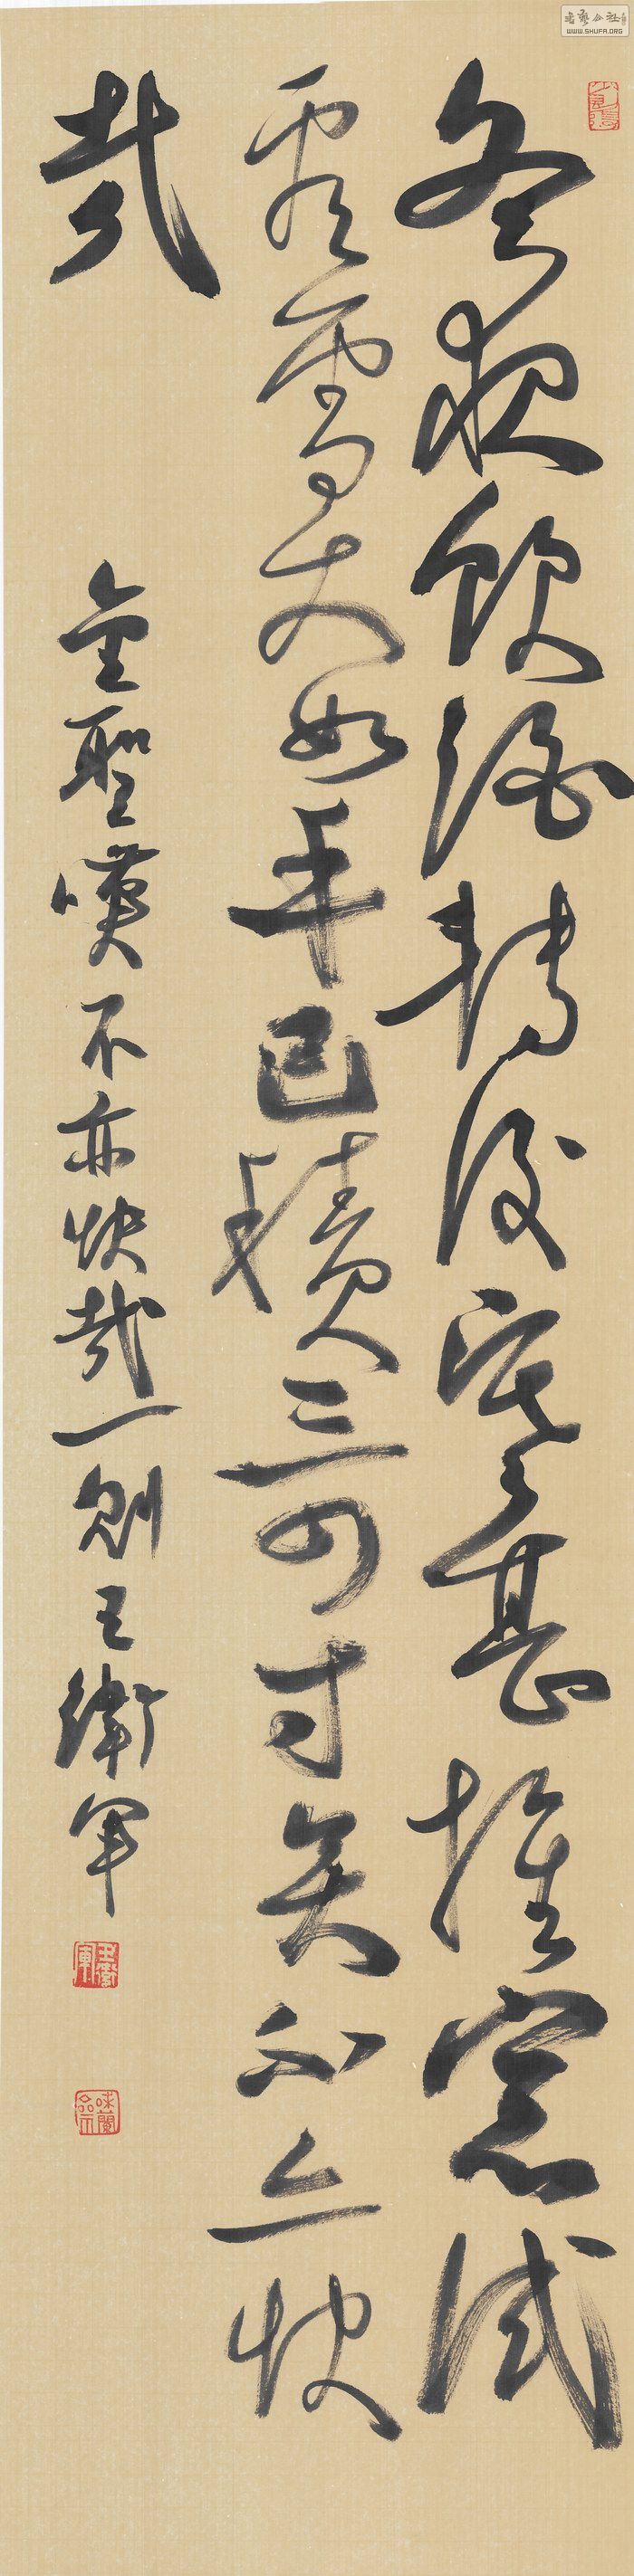 冬夜飲酒轉復寒甚推窗試
看雪大如手已積三四寸矣不亦快
哉
金聖嘆不亦快哉一則王衛軍
王衛軍
WWW.SHUFA.ORG